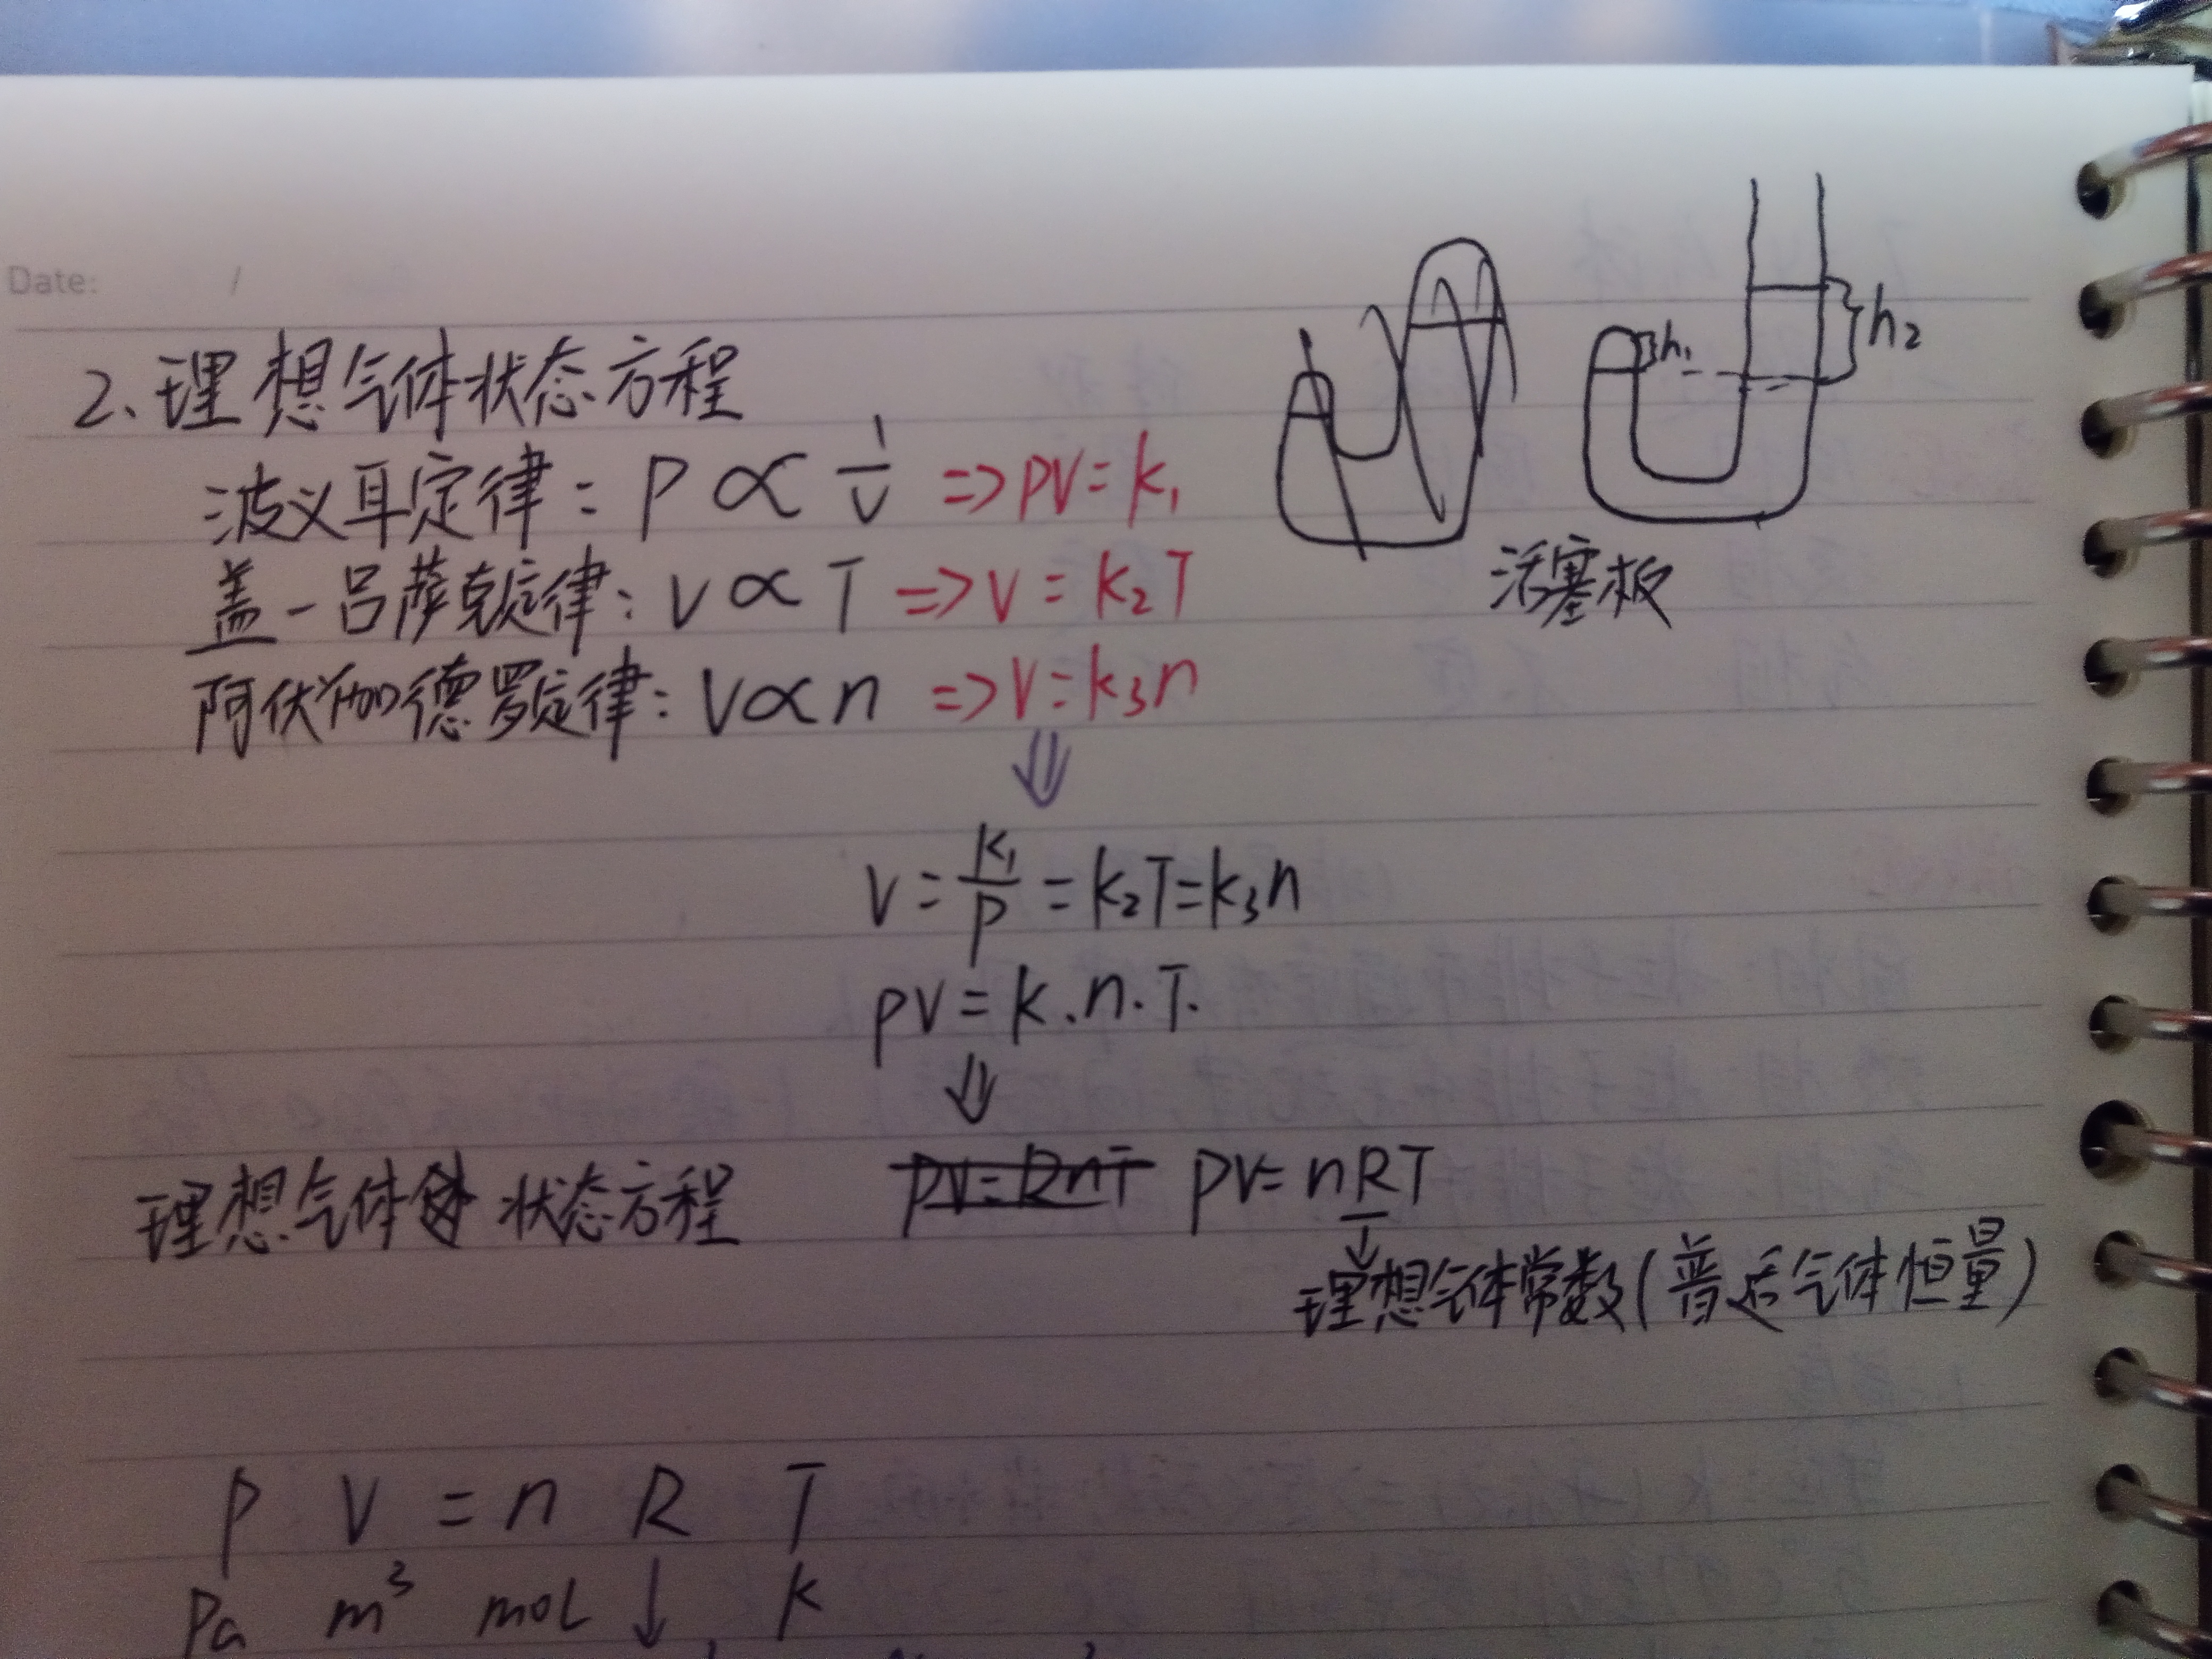 Date: /
2、理想气体状态方程
波义耳定律: P ∝ 1/V => PV=k₁
盖-吕萨克定律: V ∝ T => V=k₂T
阿伏伽德罗定律: V∝n => V=k₃n
h₁
h₂
活塞板
⇓
V = k₁/P = k₂T=k₃n
PV = k.n.T.
⇓
理想气体 状态方程 PV=RnT PV=nRT
↓
理想气体常数(普适气体恒量)
P V = n R T
Pa m³ mol ↓ k